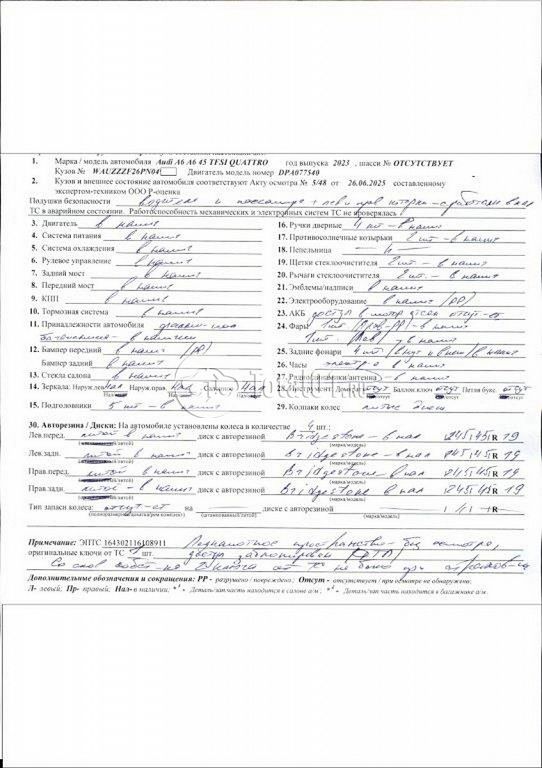 1. Марка / модель автомобиля Audi A6 A6 45 TFSI QUATTRO год выпуска 2023 , шасси № ОТСУТСТВУЕТ
Кузов № WAUZZZF26PN04 Двигатель модель номер DPA077540
2. Кузов и внешнее состояние автомобиля соответствуют Акту осмотра № 5/48 от 26.06.2025 составленному
экспертом-техником ООО Р-оценка
Подушки безопасности водителя и пассажира + лев и прав шторки – сработали в нал
ТС в аварийном состоянии. Работоспособность механических и электронных систем ТС не проверялась
3. Двигатель в налич
4. Система питания в налич
5. Система охлаждения в налич
6. Рулевое управление в налич
7. Задний мост в налич
8. Передний мост в налич
9. КПП в налич
10. Тормозная система в налич
11. Принадлежности автомобиля
в наличии
12. Бампер передний в налич (РР)
Бампер задний в налич
13. Стекла салона в налич
14. Зеркала: Наруж.лев нал Наруж.прав. нал Салонное нал
15. Подголовники 5 шт – в налич
16. Ручки дверные 4 шт – в налич
17. Противосолнечные козырьки 2 шт – в налич
18. Пепельница
19. Щетки стеклоочистителя 2 шт – в налич
20. Рычаги стеклоочистителя 2 шт. – в налич
21. Эмблемы/надписи в налич
22. Электрооборудование в налич (РР)
23. АКБ доступ в мотор отсек отсут-ет
24. Фары 1 шт (Прав – РР) – в налич
1 шт. (Лев) – в налич
25. Задние фонари 4 шт
26. Часы электро в налич
27. Радио/динамики/антенна – в налич
28. Инструмент: Домкрат отсут Баллон.ключ отсут Петля букс. отсут
29. Колпаки колес литые диски
30. Авторезина / Диски: На автомобиле установлены колеса в количестве 4 шт.:
Лев.перед. литой в налич диск с авторезиной Bridgestone – в нал 245/45/R 19
Лев.задн. литой в налич диск с авторезиной Bridgestone – в нал 245/45/R 19
Прав.перед. литой в налич диск с авторезиной Bridgestone – в нал 245/45/R 19
Прав.задн. литой – в налич диск с авторезиной Bridgestone в нал 245/45/R 19
Тип запаски.колеса: отсут-ет на диске с авторезиной / / R
(полноразмерн./докат/рем комплект) (штампованный/литой) (марка/модель)
Примечание: ЭПТС 164302116108911 Подкапотное пространство – без осмотра,
оригинальные ключи от ТС шт. двери заблокированы (ДТП)
Со слов собст-ка 2й ключ от ТС не был при
Дополнительные обозначения и сокращения: РР - разрушено / повреждено; Отсут - отсутствует / при осмотре не обнаружено;
Л- левый; Пр- правый; Нал- в наличии; *¹ - Деталь/запчасть находится в салоне а/м ; *² - Деталь/зап часть находится в багажнике а/м.